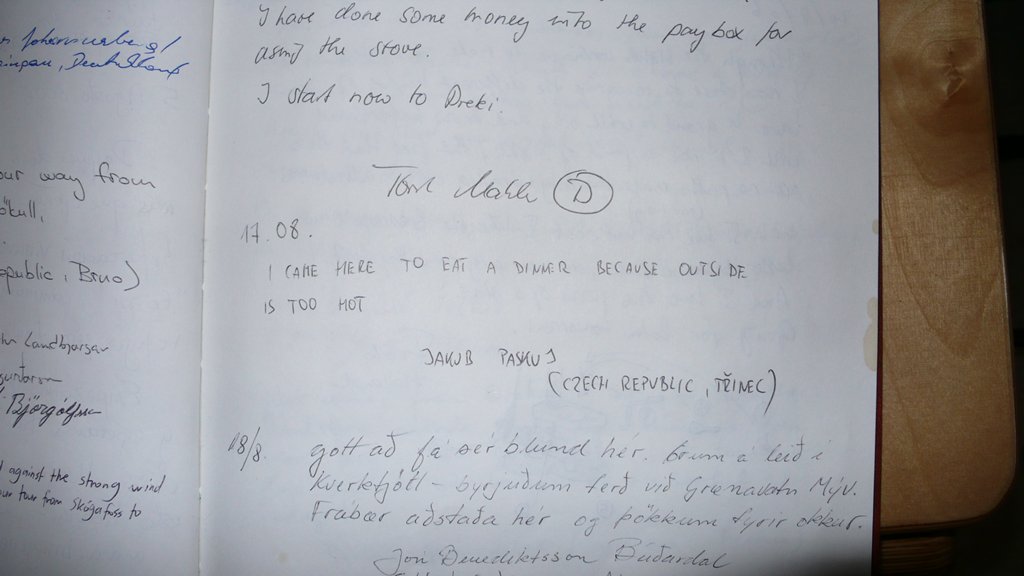 Deutschland
our way from
ökull,
epublic, Brno)
Landbjargar
Björgólfur
against the strong wind
our tour from Skógafoss to
I have done some money into the paybox for
using the stove.
I start now to Dreki.
D
17.08.
I CAME HERE TO EAT A DINNER BECAUSE OUTSIDE
IS TOO HOT
JAKUB PASKUJ
(CZECH REPUBLIC, TŘINEC)
18/8. gott að fá sér blund hér. Erum á leið í
Kverkfjöll – byrjuðum ferð við Grænavatn Mýv.
Frábær aðstaða hér og þökkum fyrir okkur.
Jón Benediktsson Búðardal